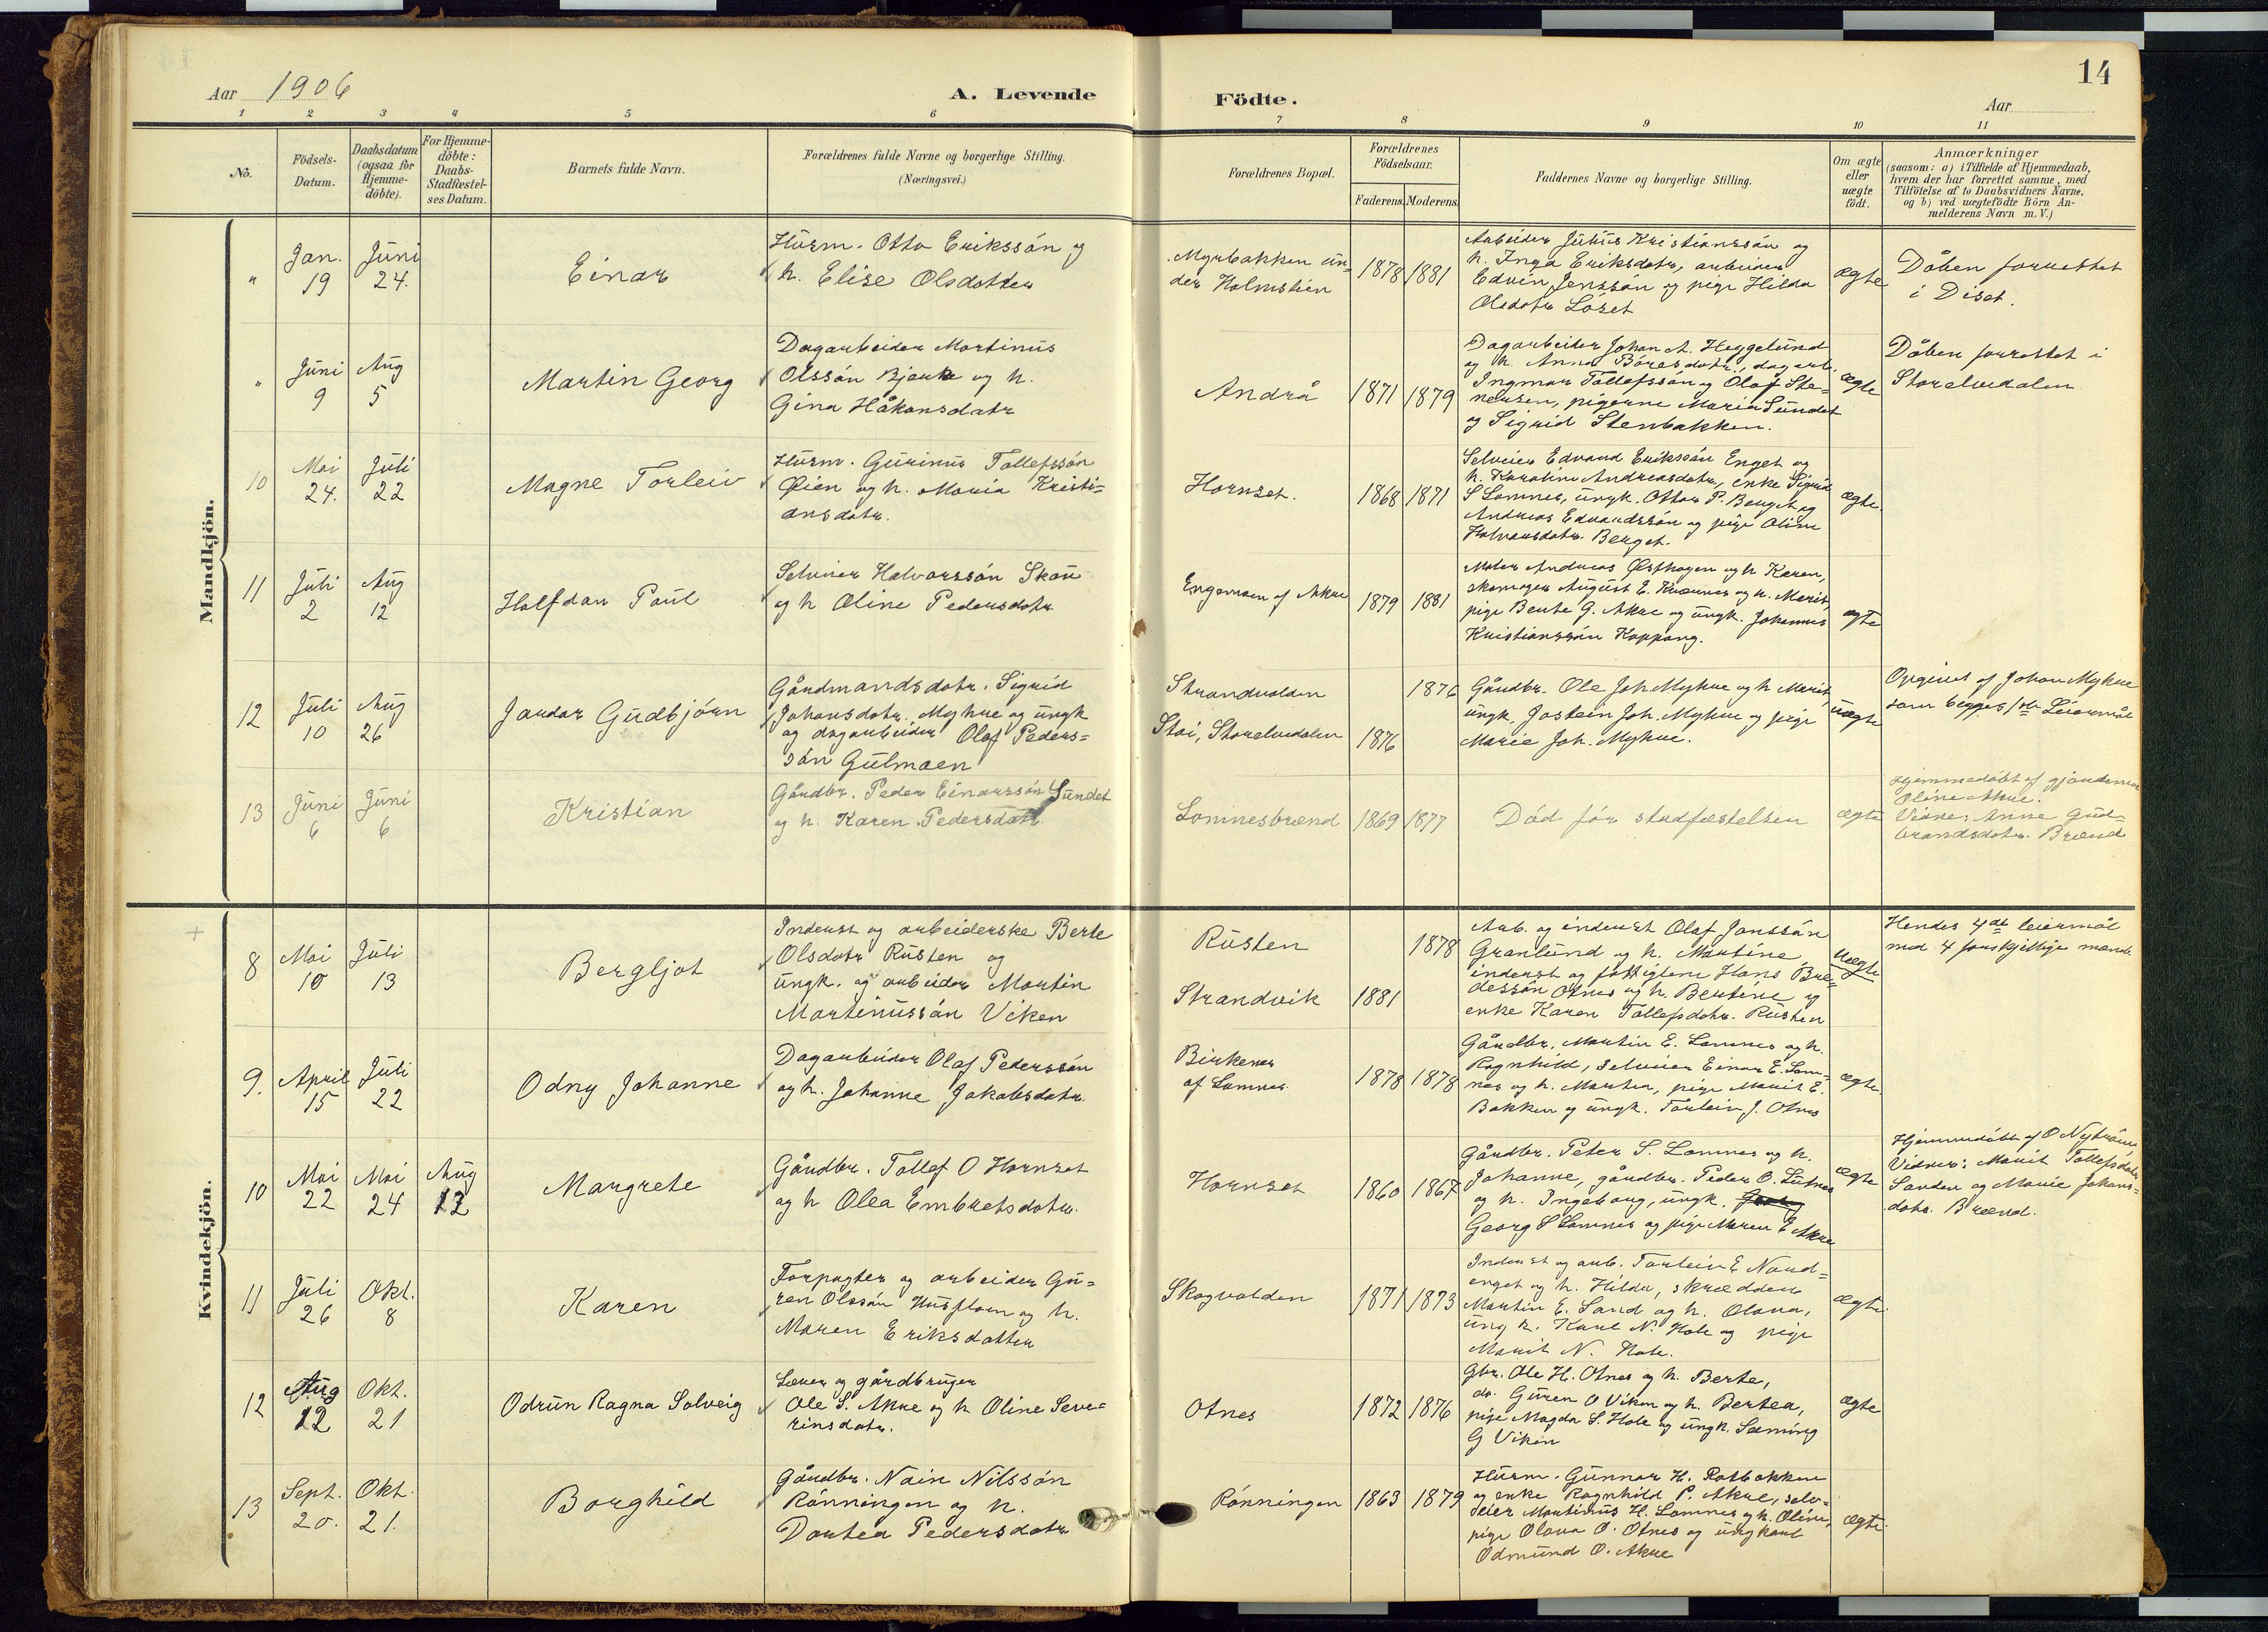 14
Aar 1906
A. Levende
Födte.
Aar
1 2 3 4 5 6 7 8 9 10 11
No.
Födsels-
Datum.
Daabsdatum
(ogsaa for
Hjemme-
döbte).
For Hjemme-
döbte:
Daabs-
Stadfæstel-
ses Datum.
Barnets fulde Navn.
Forældrenes fulde Navne og borgerlige Stilling.
(Næringsvei.)
Forældrenes Bopæl.
Forældrenes
Födselsaar.
Faderens. Moderens.
Faddernes Navne og borgerlige Stilling.
Om ægte
eller
uægte
födt.
Anmærkninger
(saasom: a) i Tilfælde af Hjemmedaab,
hvem der har forrettet samme, med
Tilföielse af to Daabsvidners Navne,
og b) ved uægtefödte Börn An-
melderens Navn m. V.)
Mandkjön.
"
Jan.
19
Juni
24.
Einar
Husm. Otto Erikssön og
h. Elise Olsdotter
Myrbakken un-
der Holmstien
1878 1881
Arbeider Julius Kristianssön og
h. Inga Eriksdotr, arbeider
Edvin Jenssön og pige Hilda
Olsdotr Löset
ægte
Dåben forrettet
i Diset.
"
Juni
9
Aug
5
Martin Georg
Dagarbeider Martinus
Olssön Bjerke og h.
Gina Håkonsdatr
Andrå
1871 1879
Dagarbeider Johan A. Heggelund
og h. Anna Böresdotr., dagarb.
Ingmar Tollefssön og Olaf Ste-
nersen, pigerne Maria Sundet
og Sigrid Stenbakken.
ægte
Dåben forrettet i
Storelvedalen
10
Mai
24.
Juli
22
Magne Torleiv
Husm. Gurinus Tollefssön
Öien og h. Maria Kristi-
ansdatr.
Hornset.
1868 1871
Selveier Edvard Erikssön Enget og
h. Karoline Andreasdotr, enke Sigrid
S Lomnes, ungk. Ottar P. Berget og
Andreas Edvardssön og pige Oline
Halvorsdotr. Berget.
ægte.
11
Juli
2
Aug
12
Halfdan Paul
Selveier Halvorssön Skou
og h Oline Pedersdotr
Engamoen af Akre
1879 1881
Maler Andreas Östhagen og h Karen,
skomager August E. Kværnes og h. Marit,
pige Bente G. Akre og ungk. Johannes
Kristianssön Koppang.
ægte
12
Juli
10
Aug
26
Jardar Gudbjörn
Gårdmandsdotr. Sigrid
Johansdotr. Myhre og ungk
og dagarbeider Olaf Peders-
sön Gulmoen
Strandvolden
Stai, Storelvedalen
1876
1876
Gårdbr. Ole Joh. Myhre og h Marit,
ungk. Jostein Joh. Myhre og pige
Marie Joh. Myhre.
uægte
Opgivet af Johan Myhre
som begges 1ste Leiermål
13
Juni
6
Juni
6
Kristian
Gårdbr. Peder Einarssön Sundet
og h. Karen Pedersdatr.
Lomnesbrænd
1869 1877
Död för stadfæstelsen
ægte
Hjemmedöbt af gjordemor
Oline Akre.
Vidne: Anne Gud-
brandsdotr. Brænd
Kvindekjön.
8
Mai
10
Juli
13
Bergljot
Inderst og arbeiderske Berte
Olsdotr Rusten og
ungk. og arbeider Martin
Martinussön Viken
Rusten
Strandvik
1878
1881
Arb. og inderst Olaf Janssön
Granlund og h. Martine,
inderst og fattiglem Hans Bre-
dessön Otnes og h. Bertine og
enke Karen Tollefsdotr. Rusten
Uægte
Hendes 4de leiermål
med 4 forskjellige mænd.
9.
April
15
Juli
22
Odny Johanne
Dagarbeider Olaf Pederssön
og h. Johanne Jakobsdotr.
Birkenes
af Lomnes.
1878 1878
Gårdbr. Martin E. Lomnes og h.
Ragnhild, selveier Einar E. Lom-
nes og h. Marten, pige Marit E.
Bakken og ungk. Torleiv J. Otnes
ægte.
10
Mai
22
Mai
24
Aug
12
Margrete
Gårdbr. Tollef O Hornset
og h Olea Embretsdotr.
Hornset
1860 1867
Gårdbr. Peter S. Lomnes og h.
Johanne, gårdbr. Peder O. Lutnes
og h. Ingeborg, ungk.
Georg S Lomnes og pige Maren E Akre
ægte
Hjemmedöbt af O Nyhuus,
Vidner: Marit Tollefsdotr
Sanden og Marie Johans-
dotr. Brænd.
11
Juli
26
Okt.
8
Karen
Forpagter og arbeider Gu-
ren Olssön Husfloen og h.
Maren Eriksdatter
Skogvolden
1871 1873
Inderst og arb. Torleiv E Nord-
enget og h. Hilda, skrædder
Martin E. Sand og h. Olava,
ungk. Karl N. Hole og pige
Marit N. Hole.
ægte.
12
Aug
12
Okt.
21
Odrun Ragna Solveig
Lærer og gårdbruger
Ole S. Akre og h Oline Seve-
rinsdotr.
Otnes
1872 1876
Gbr. Ole H. Otnes og h. Berte,
do. Guren O Viken og h. Bertea,
pige Magda S. Hole og ungk. Sæming
G Viken
ægte
13
Sept.
20.
Okt.
21.
Borghild
Gårdbr. Nain Nilssön
Rönningen og h.
Dortea Pedersdotr
Rönningen
1863 1879
Husm. Gunnar H. Rotbakken
og enke Ragnhild P. Akre, selv-
eier Martinus H. Lomnes og h. Oline,
pige Olava O. Otnes og ungkarl
Odmund O. Akre
ægte.